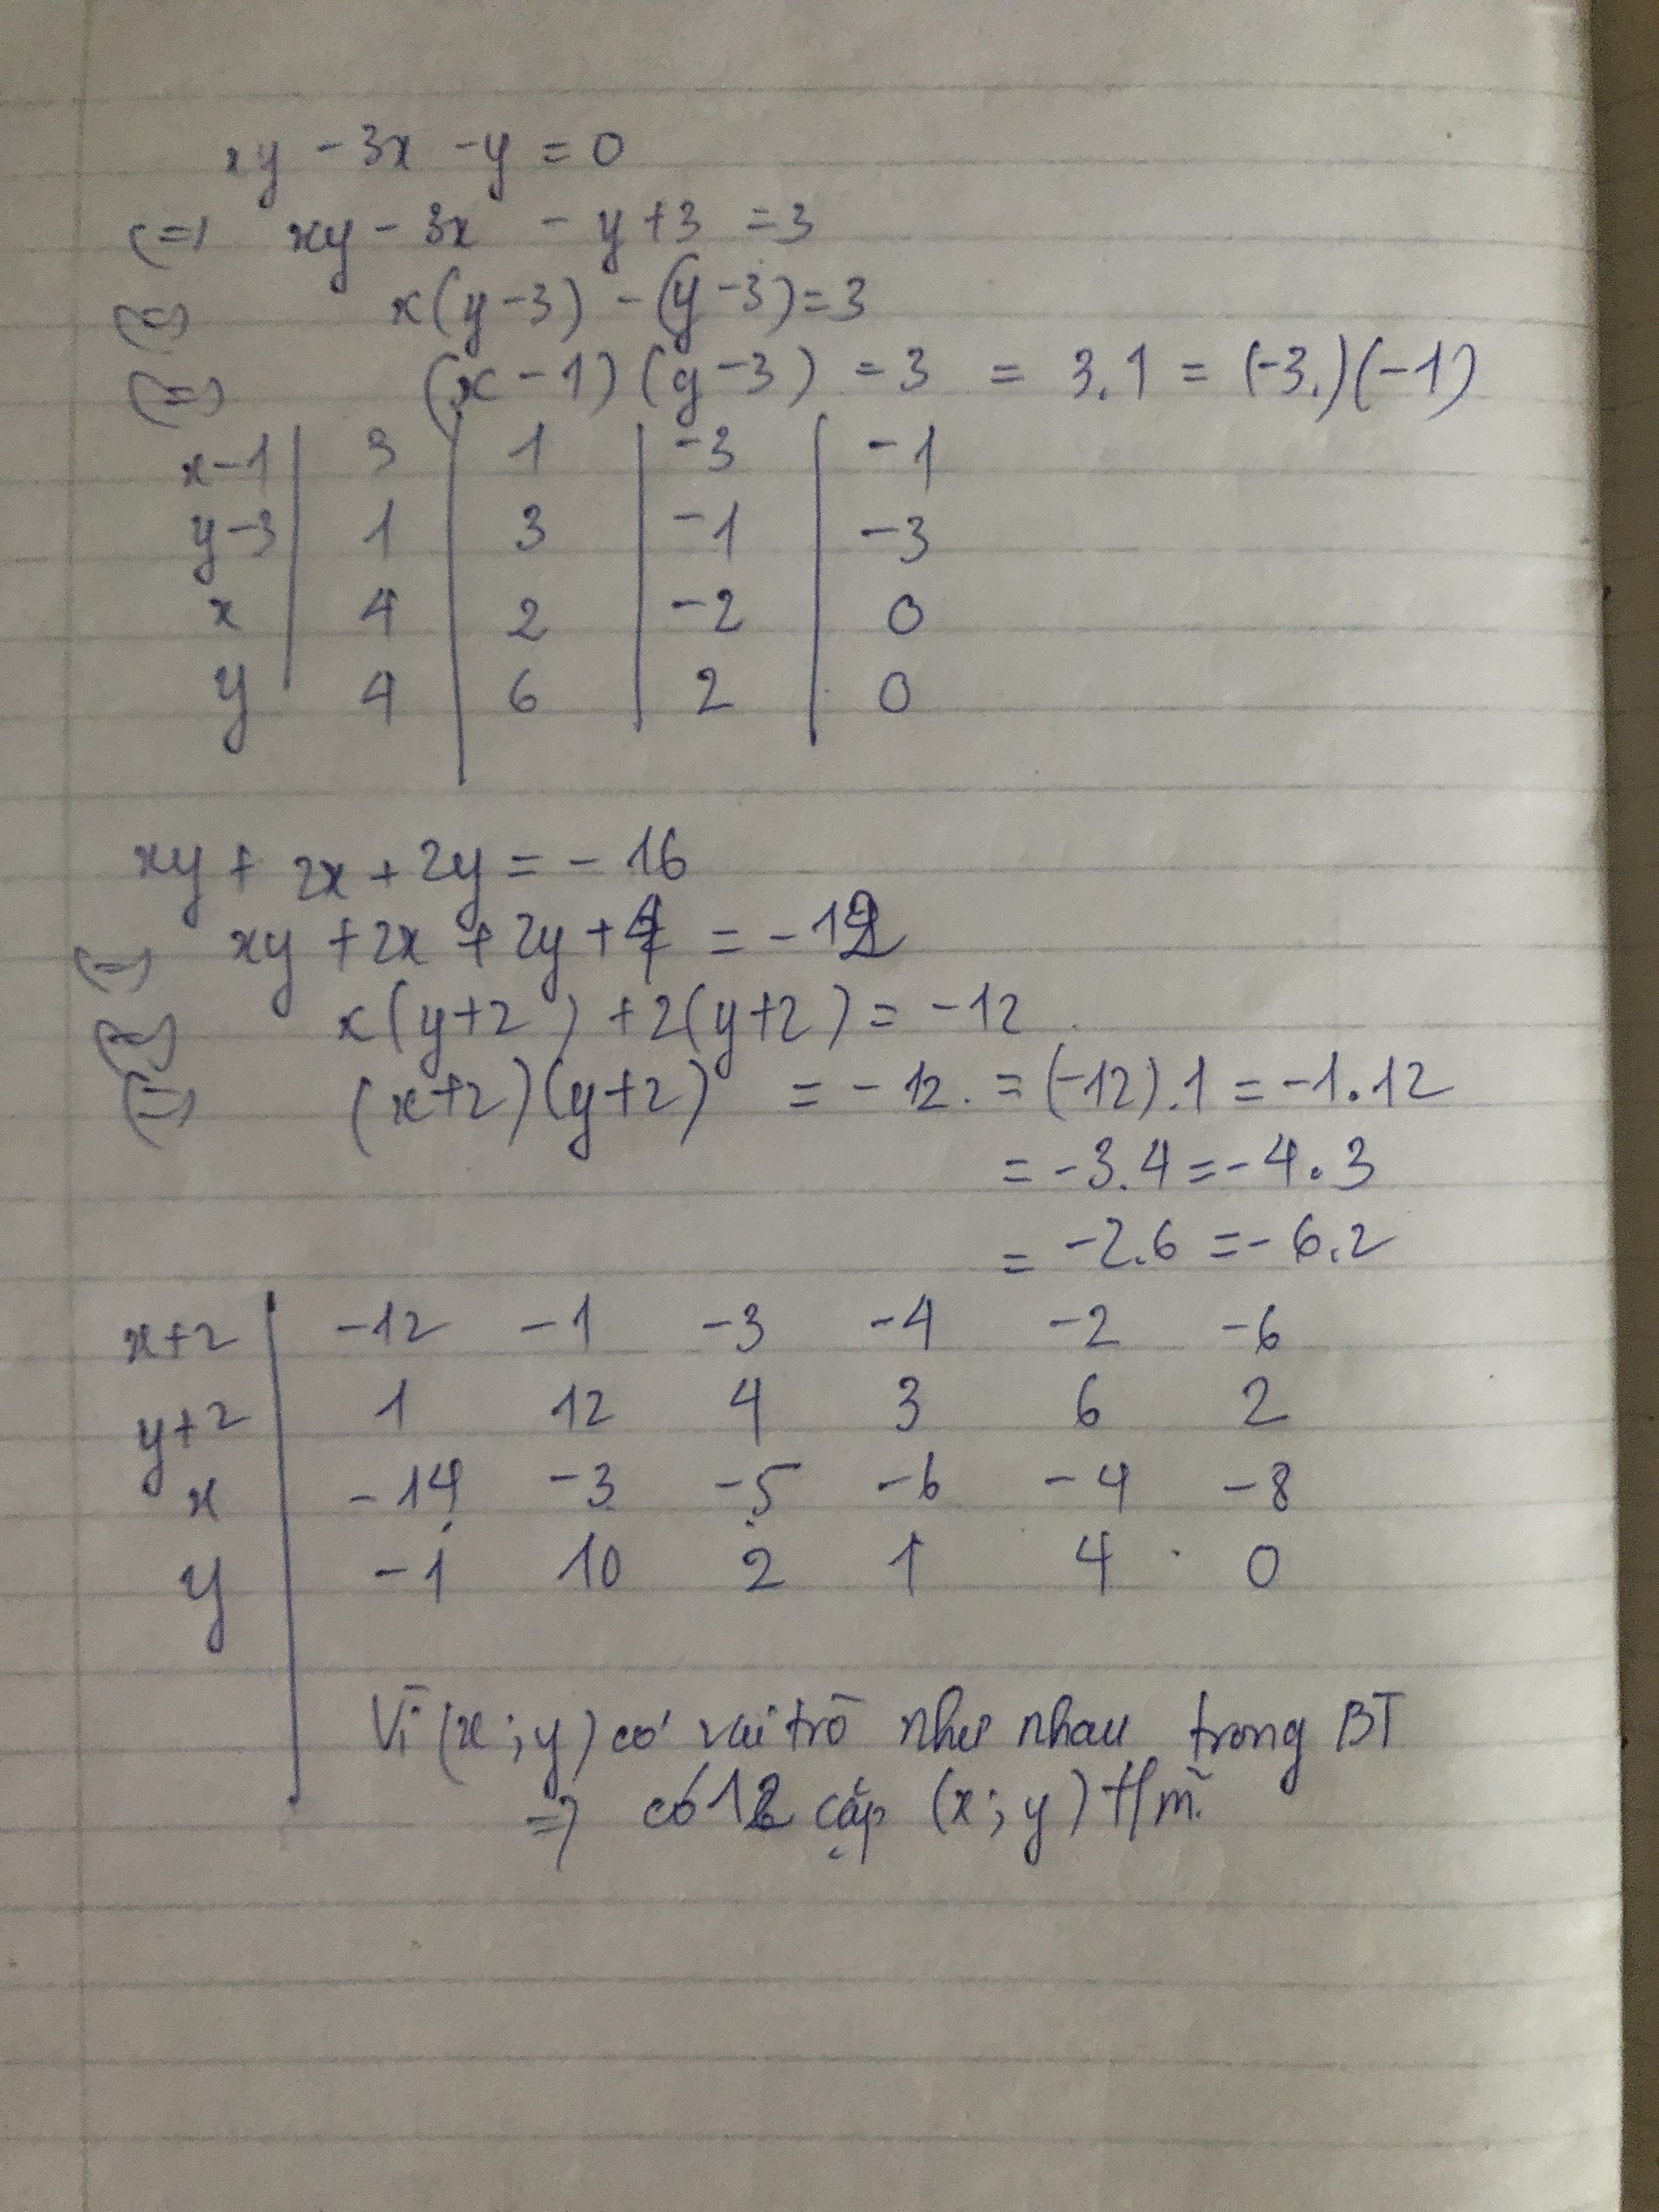 xy - 3x - y = 0
(=) xy - 3x - y + 3 = 3
(=) x(y-3) - (y-3) = 3
(=) (x-1)(y-3) = 3 = 3.1 = (-3.)(-1)
x-1 | 3 | 1 | -3 | -1
y-3 | 1 | 3 | -1 | -3
x | 4 | 2 | -2 | 0
y | 4 | 6 | 2 | 0
xy + 2x + 2y = -16
(=) xy + 2x + 2y + 4 = -12
(=) x(y+2) + 2(y+2) = -12
(=) (x+2)(y+2) = -12. = (-12).1 = -1.12
= -3.4 = -4.3
= -2.6 = -6.2
x+2 | -12 -1 -3 -4 -2 -6
y+2 | 1 12 4 3 6 2
x | -14 -3 -5 -6 -4 -8
y | -1 10 2 1 4 0
Vì (x;y) có vai trò như nhau trong BT
=> có 12 cặp (x;y) t/m.